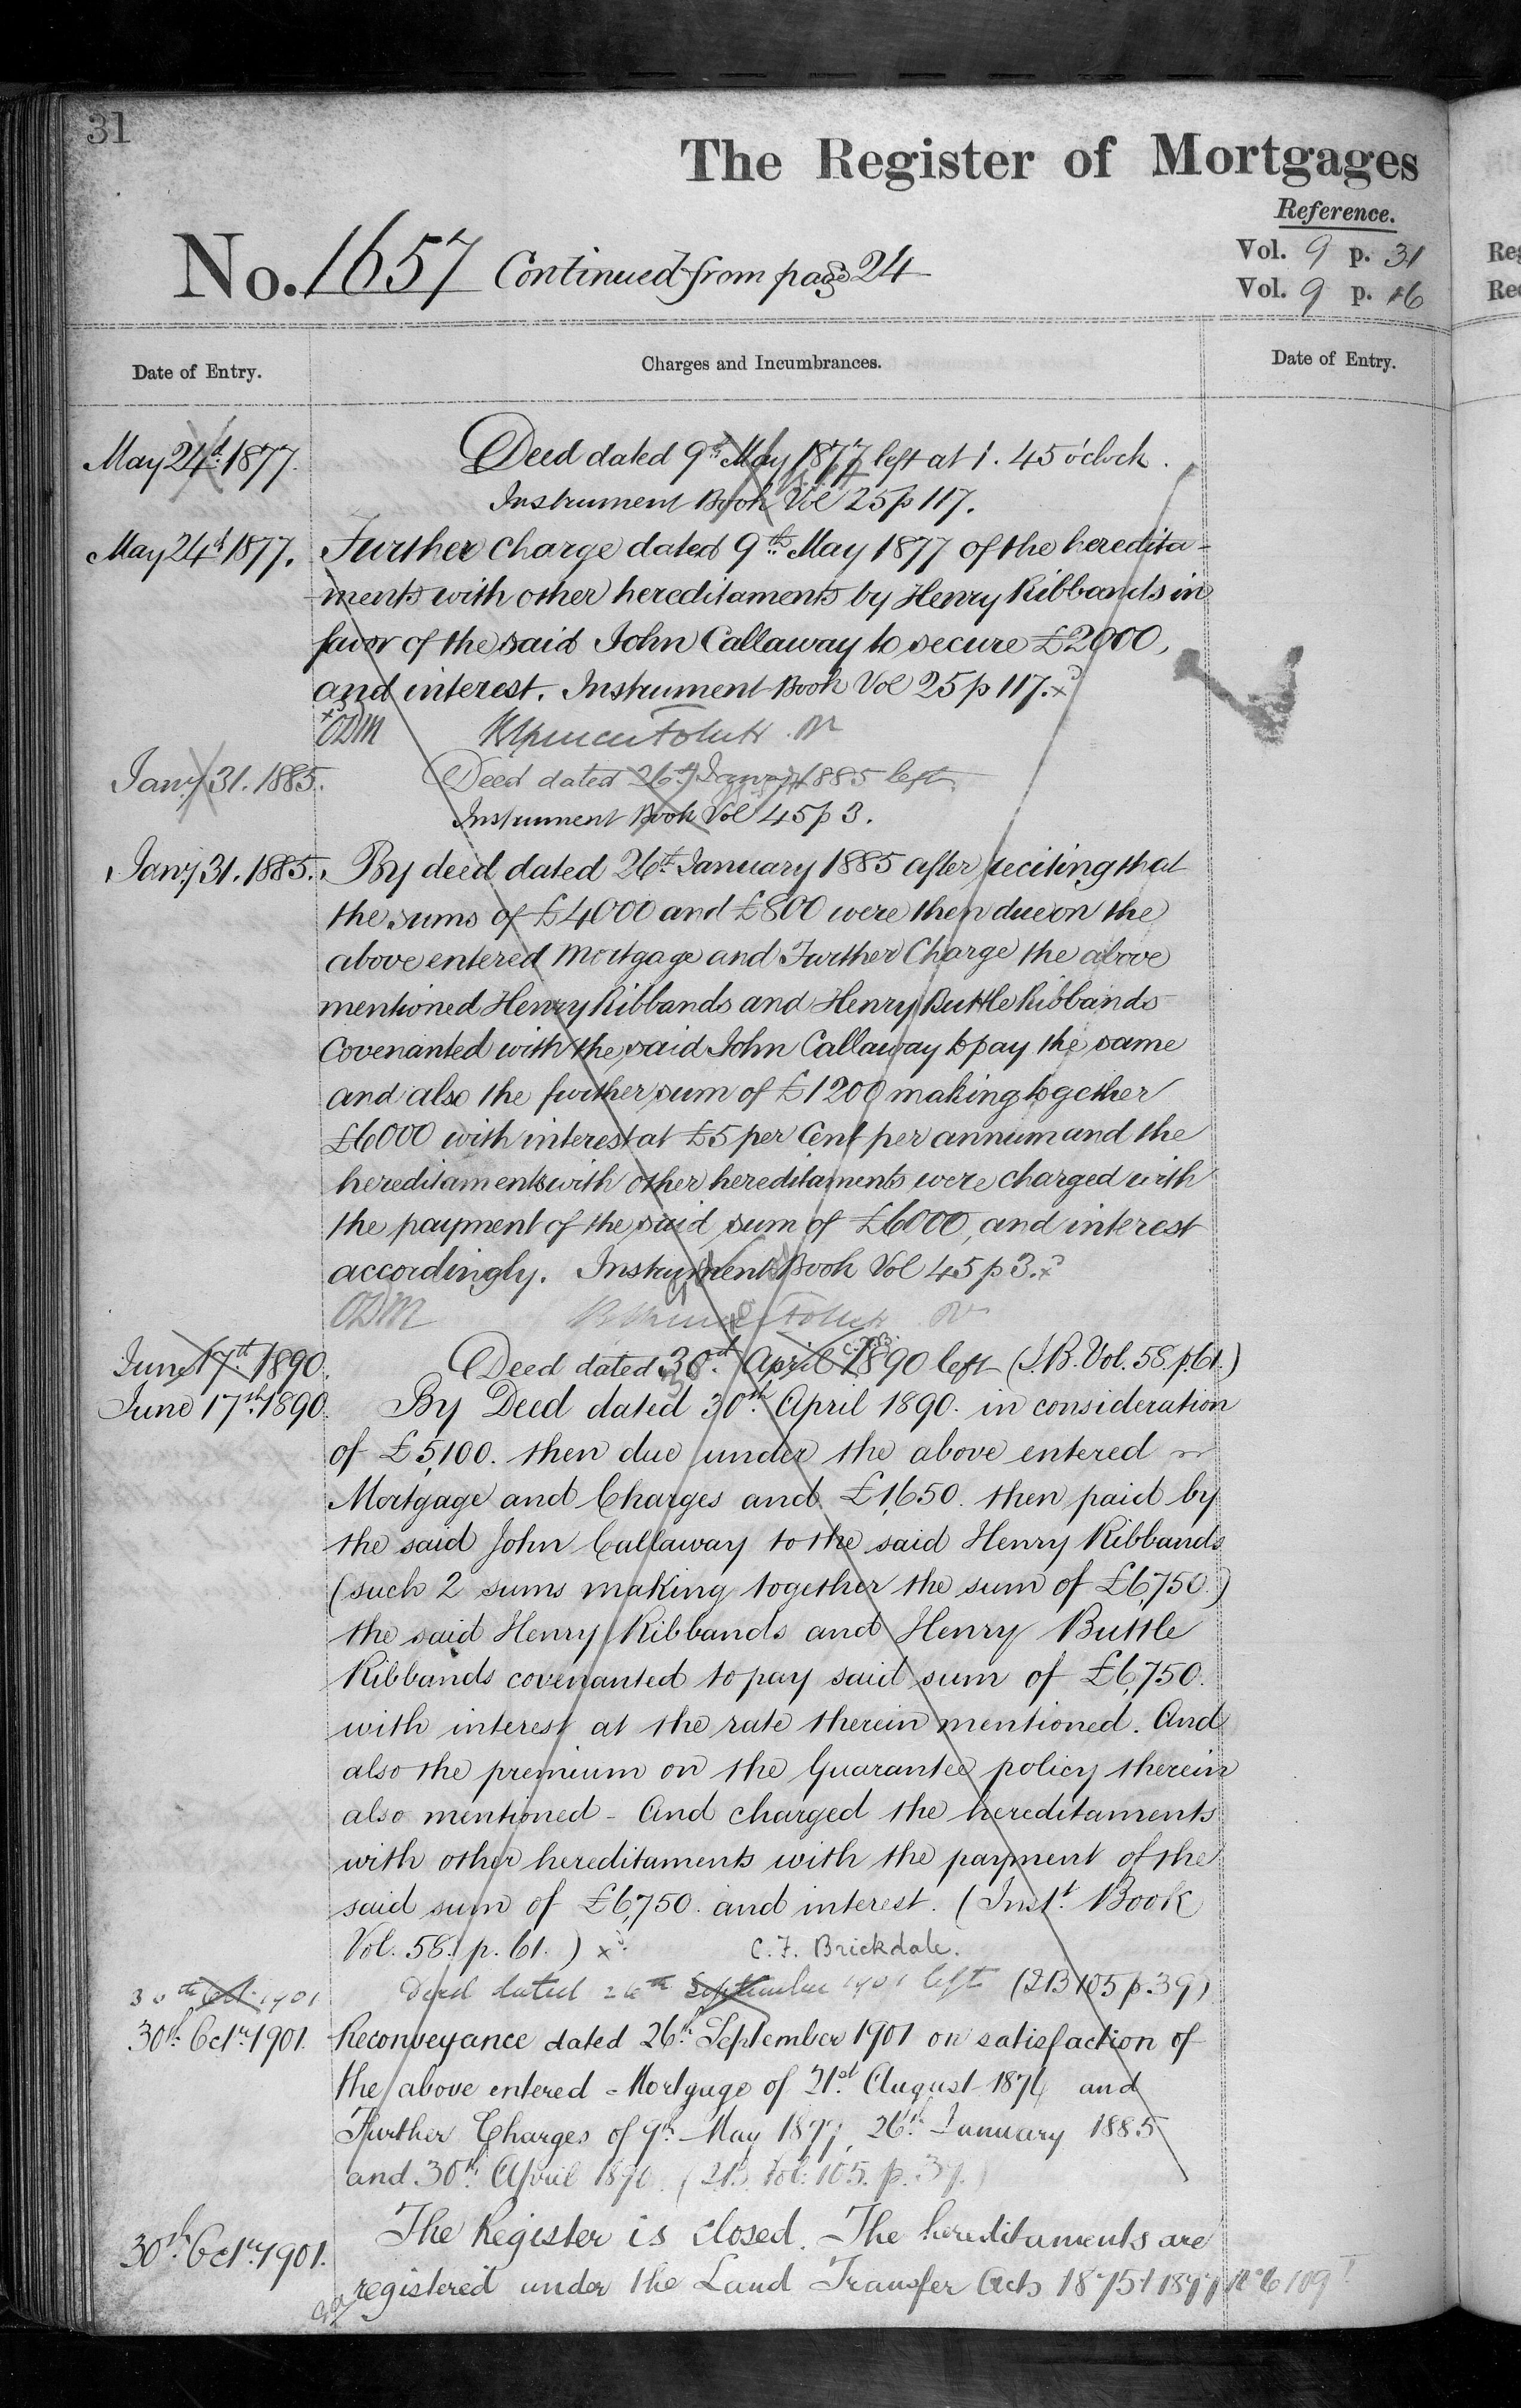 31
The Register of Mortgages
Reference.
No. 1657 Continued from page 24
Vol. 9 p. 31
Vol. 9 p. 16
Date of Entry.
Charges and Incumbrances.
Date of Entry.
May 24th 1877. Deed dated 9th May 1877 left at 1.45 o'clock.
Instrument Book Vol 25 p 117.
May 24th 1877. Further charge dated 9th May 1877 of the heredita-
ments with other hereditaments by Henry Ribbands in
favor of the said John Callaway to secure £2000,
and interest. Instrument Book Vol 25 p 117. x
x ODM
Jany 31. 1885. Deed dated 26th Jany 1885 left
Instrument Book Vol 45 p 3.
Jany 31. 1885. By deed dated 26th January 1885 after reciting that
the sums of £4000 and £800 were then due on the
above entered Mortgage and Further Charge the above
mentioned Henry Ribbands and Henry Buttle Ribbands
Covenanted with the said John Callaway to pay the same
and also the further sum of £1200 making together
£6000 with interest at £5 per Cent per annum and the
hereditaments with other hereditaments were charged with
the payment of the said sum of £6000, and interest
accordingly. Instrument Book Vol 45 p 3. x
ODM
June 17th 1890. Deed dated 30th April 1890 left (I.B. Vol. 58. p. 61.)
June 17th 1890. By Deed dated 30th April 1890. in consideration
of £5,100. then due under the above entered
Mortgage and Charges and £1,650. then paid by
the said John Callaway to the said Henry Ribbands
(such 2 sums making together the sum of £6,750.)
the said Henry Ribbands and Henry Buttle
Ribbands covenanted to pay said sum of £6,750.
with interest at the rate therein mentioned. And
also the premium on the Guarantee policy therein
also mentioned - And charged the hereditaments
with other hereditaments with the payment of the
said sum of £6,750. and interest. (Inst. Book
Vol. 58. p. 61.) x C. F. Brickdale.
30th Oct. 1901 Deed dated 26th September 1901 left (IB 105 p. 39)
30th Octr. 1901. Reconveyance dated 26th September 1901 on satisfaction of
the above entered Mortgage of 21st August 1874 and
Further Charges of 9th May 1877, 26th January 1885
and 30th April 1890. (I.B. Vol. 105. p. 39.)
30th Octr. 1901. The Register is closed. The hereditaments are
registered under the Land Transfer Acts 1875 & 1897
Reg
Rec